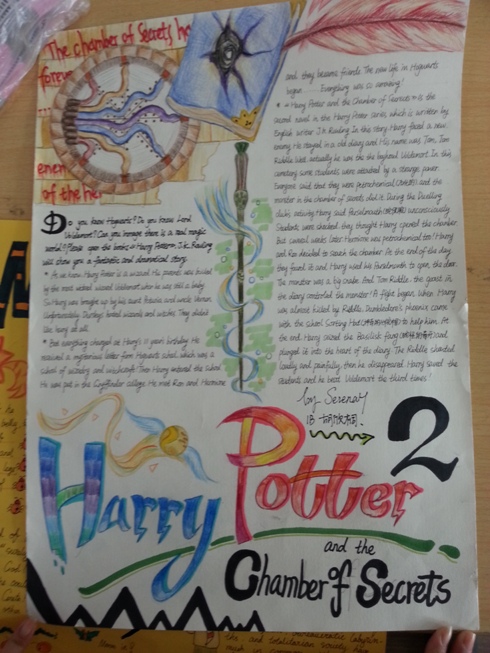 The chamber of Secrets ha
forev
enem
of the he
Do you know Hogwarts? Do you know Lord
Voldemort? Can you imagine there is a real magic
world? Please open the books 《Harry Potter》. J.K. Rowling
will show you a fantastic and dramatical story.
* As we know Harry Potter is a wizard. His parents was killed
by the most wicked wizard Voldemort when he was still a baby.
So Harry was brought up by his aunt Petunia and uncle Vernon.
Unfortunately, Dursleys hated wizards and witches. They didn't
like Harry at all.
* But everything changed at Harry's 11 years' birthday. He
received a mysterious letter from Hogwarts school, which was a
school of wizardry and witchcraft. Then Harry entered the school.
He was put in the Gryffindor college. He met Ron and Hermione
and they became friends. The new life in Hogwarts
began. Everything was so amazing!
* 《Harry Potter and the Chamber of Secrets》 is the
second novel in the Harry Potter series, which is written by
English writer J.K. Rowling. In this story Harry faced a new
enemy. He stayed in a old diary and His name was Tom. Tom
Riddle. Well, actually he was the boyhood Voldemort. In this
semester, some students were attacked by a strange power.
Everyone said that they were petrochemical and the
monster in the chamber of secrets did it. During the Duelling
clubs, activity Harry said Parselmouth unconsciously.
Students were shocked. they thought Harry opened the chamber
But several weeks later Hermione was petrochemical too! Harry
and Ron decided to search the chamber. At the end of the day
they found it and Harry used his Parselmouth to open the door.
The monster was a big snake. And Tom Riddle, the guest in
the diary controled the monster! A fight began. When Harry
was almost killed by Riddle, Dumbledore's phoenix came
with the school Sorting Hat to help him. At
the end Harry seized the Basilisk fang and
plunged it into the heart of the diary. Tom Riddle shouted
loudly and painfully, then he disappeared. Harry saved the
students and he beat Voldemort the third times!
by Serena
2
Harry Potter
and the
Chamber of Secrets